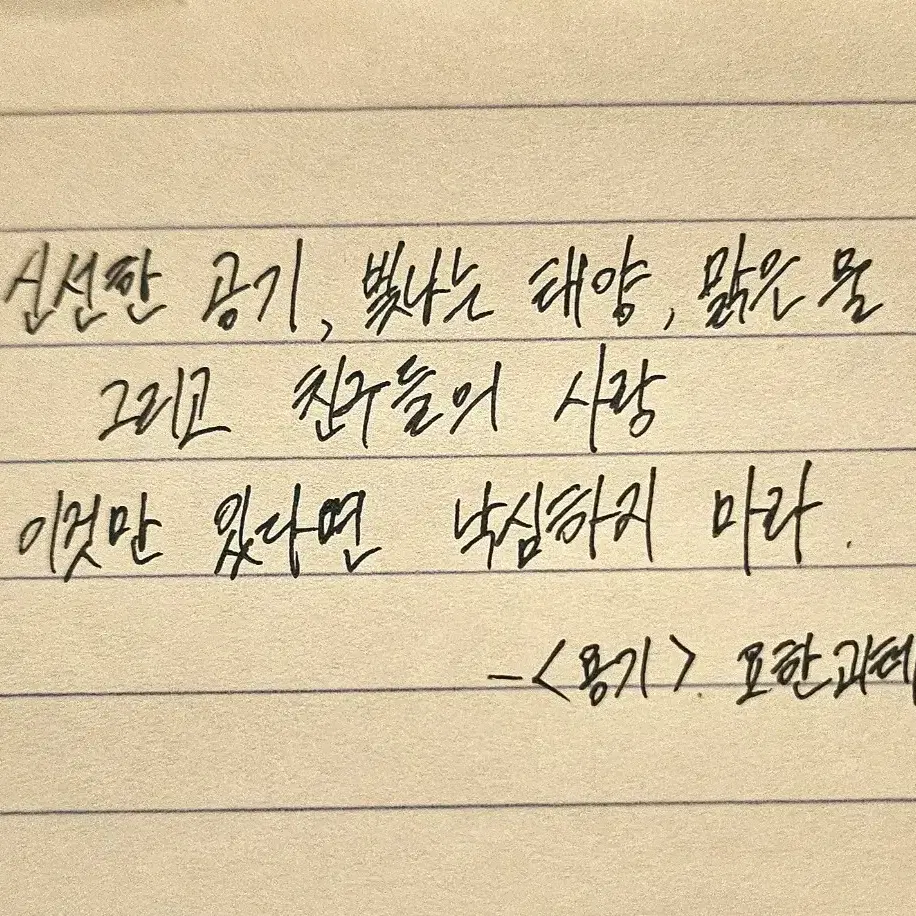 신선한 공기, 빛나는 태양, 맑은 물
그리고 친구들의 사랑
이것만 있다면 낙심하지 마라.
-<용기>. 요한 괴테